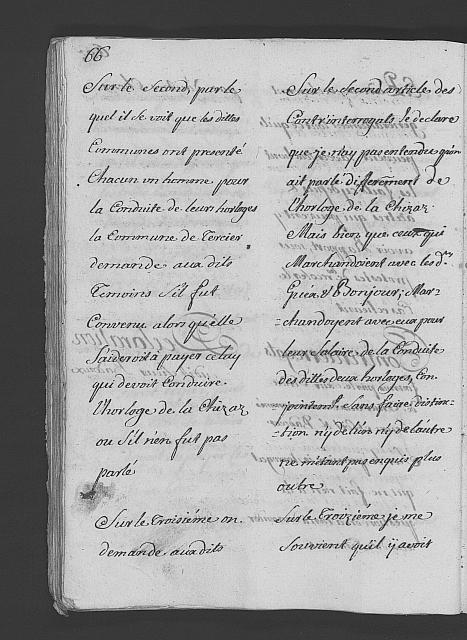 66
Sur le Second, par le
quel il Se voit que les dittes
Communes ont presenté
Chacun un homme pour
la Conduite de leurs horloges
la Commune de Tercier
demande aux dits
Temoins S'il fut
Convenu alors qu'elle
S'aideroit a payer celuy
qui devoit Conduire
l'horloge de la Chizaz
ou S'il n'en fut pas
parlé
Sur le Troisiéme on
demande aux dits
Sur le Second article des
Contr'interrogats, Je declare
que je n'ay pas entendu qu'on
ait parlé differement de
l'horloge de la Chizaz
Mais bien que ceux qui
Marchandoient avec les dts
Guéx & Bonjour; Mar-
-chandoyent avec eux pour
leur Salaire de la Conduite
des dittes deux horloges, Con-
jointemt. Sans faire distinc-
-tion ny de l'un ny de l'autre
ne m'étant pas enquis plus
outre
Sur le Troiziéme je me
Souvient qu'il y avoit